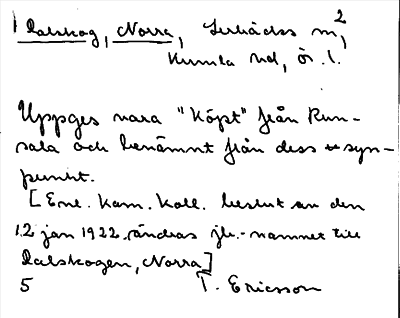 Dalskog, Norra, Lerbäcks sn,
2
Kumla hd, ör. l.
Uppges vara "Köpt" från Run-
sala och benämnt från dess syn-
punkt.
[Enl. Kam. Koll. beslut av den
12 jan 1922 ändras jb.-namnet till
Dalskogen, Norra]
5 T. Ericsson